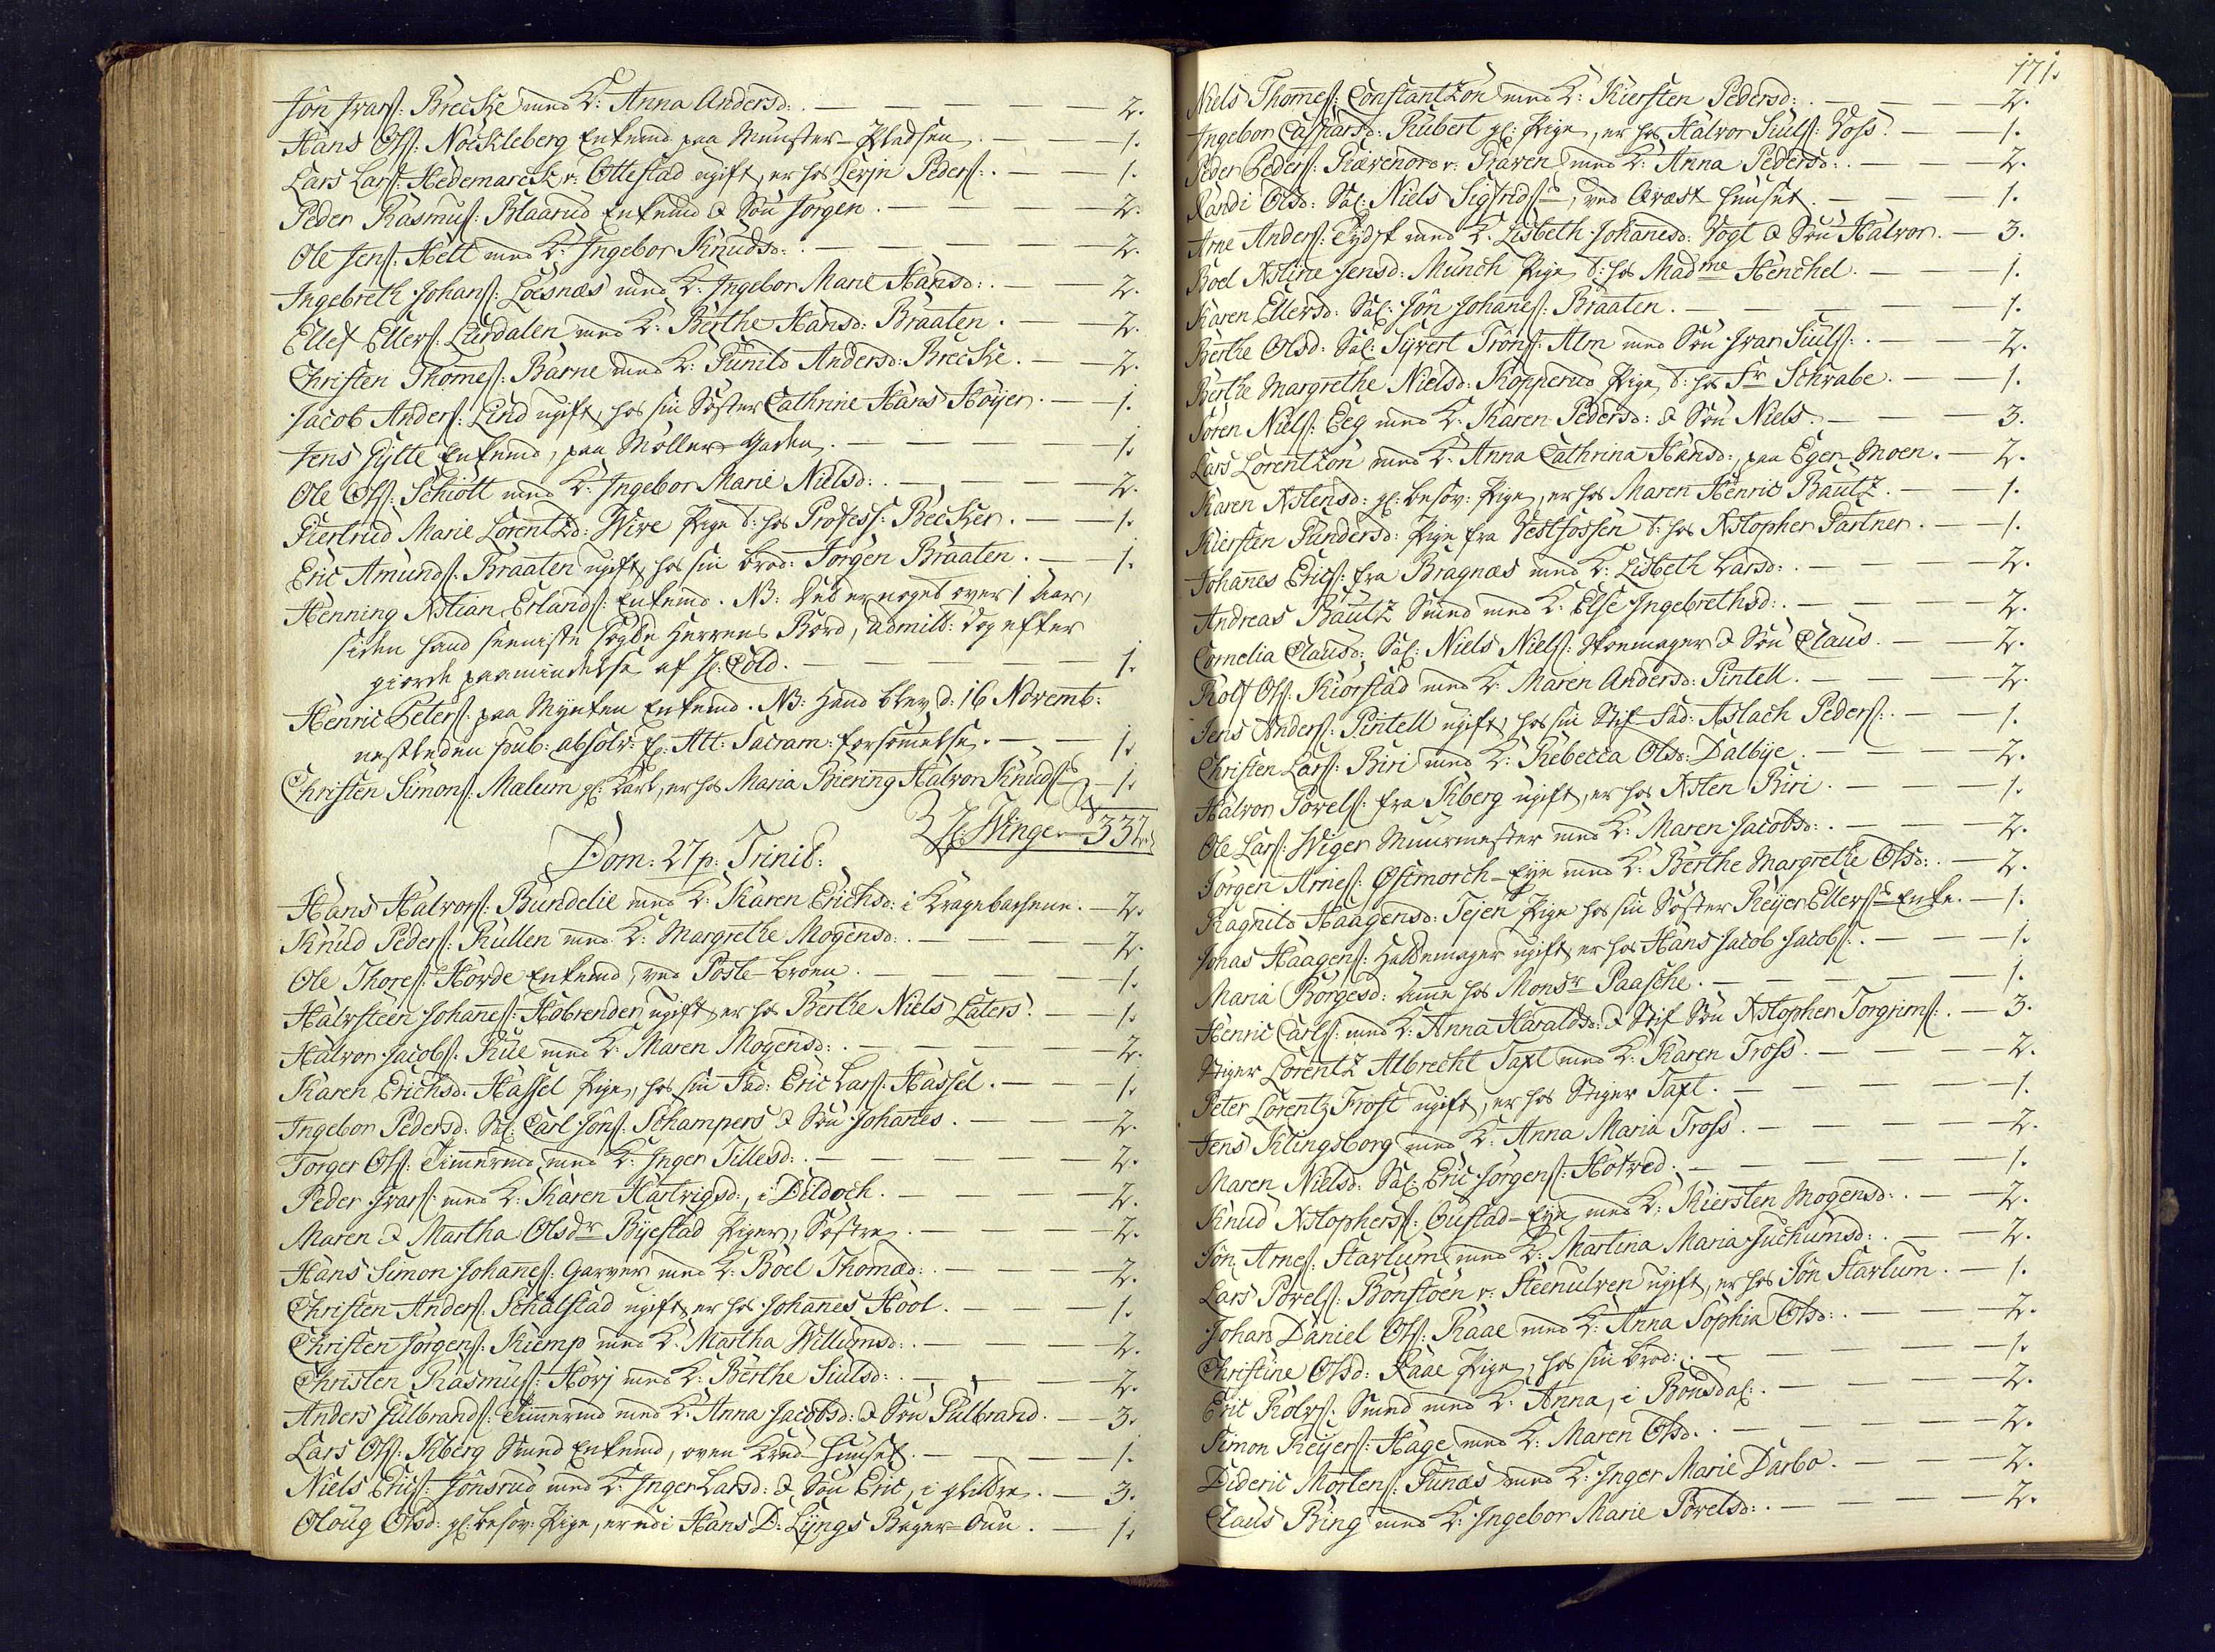 Jôn Ivars: Brecke med K: Anna Andersd: . — 2.
Hans Ols: Nockleberg Enkemd paa Mynster-Pladsen. — 1.
Lars Lars: Hedemarck v: Ottestad ugift, er hos Peders: . — 1.
Peder Rasmus: Blaarud Enkemd & Søn Jørgen. — 2.
Ole Jens: Helt med K: Ingebor Knudsd: . — 2.
Ingebreth Johans: Loesnæs med K: Ingebor Marie Hansd: . — 2.
Ellef Ellefs: Lurdalen med K: Berthe Hansd: Braaten. — 2.
Christen Thomes: Barne med K: Gunild Andersd: Brecke. — 2.
Jacob Anders: Lind ugift, hos sin Søster Cathrine Hans Høyer. — 1.
Jens Gytte Enkemd, paa Møller-Gaden. — 1.
Ole Ols: Schiøtt med K: Ingebor Marie Nielsd: . — 2.
Giertrud Marie Lorentzd: Wire Pige t: hos Profess: Becker. — 1.
Eric Amunds: Braaten ugift, hos sin Brod: Jørgen Braaten. — 1.
Henning Xstian Erlands: Enkemd. NB: Det er noget over 1 Aar,
siden hand seeniste søgte Herrens Bord, admitt: dog efter
giorde paamindelse af Hr: Cold. — 1.
Henric Peters: paa Mynten Enkemd. NB: Hand blev d: 16 Novemb:
nestleden pub: absolv: for Alt: Sacram: forsømmelse. — 1.
Christen Simons: Mælum gl: Karl, er hos Maria Biering Halvor Knuds — 1.
Hr: Winger — 332
Dom: 27 p: Trinit:
Hans Halvors: Bundelie med K: Karen Erichsd: i Kragebachene. — 2.
Knud Peders: Rullen med K: Margrethe Mogensd: . — 2.
Ole Thores: Hørde Enkemd, ved Poste-Broen. — 1.
Halvsteen Johanes: Habrenden ugift, er hos Berthe Niels Laters. — 1.
Halvor Jacobs: Rue med K: Maren Mogensd: . — 2.
Karen Erichsd: Hassel Pige, hos sin Fad: Eric Lars: Hassel. — 1.
Ingebor Pedersd: Sal: Carl Jôns: Schampers & Søn Johannes. — 2.
Torger Ols: Timmermd med K: Inger Tillesd: . — 2.
Peder Ivars: med K: Karen Hartvigsd:, i Dildoch. — 2.
Maren & Martha Olsdr Byestad Piger, Søstre. — 2.
Hans Simon Johanes: Garver med K: Boel Thomæd: . — 2.
Christen Anders: Schalstad ugift, er hos Johannes Hool. — 1.
Christen Jørgens: Kiemp med K: Martha Willumsd: . — 2.
Christen Rasmus: Hørj med K: Berthe Siulsd: . — 2.
Anders Gulbrands: Timmermd med K: Anna Jacobsd: & Søn Gulbrand. — 3.
Lars Ols: Kberg Smed Enkemd, oven Krud-Huuset. — 1.
Niels Erics: Jônsrud med K: Inger Larsd: & Søn Eric, i — 3.
Oloug Olsd: gl: besov: Pige, er udi Hans D: Lyngs Bager-Oun. — 1.
171.
Niels Thomes: Constantzon med K: Kiersten Pedersd: . — 2.
Ingebor Caspersd: Rubert gl: Pige, er hos Halvor Siuls: Voss. — 1.
Peder Peders: Gravenor v: Graven med K: Anna Pedersd: . — 2.
Randi Olsd: Sal: Niels Sigfrids, ved Arrest Huuset. — 1.
Arne Anders: Tydsk med K: Lisbeth Johanesd: Vogt & Søn Halvor. — 3.
Boel Xstine Jensd: Munch Pige t: hos Madme Henchel. — 1.
Karen Ellevsd: Sal: Jôn Johanes: Braaten. — 1.
Berthe Olsd: Sal: Syvert Trôns: Alm med Søn Ivar Siuls: . — 2.
Berthe Margrethe Nielsd: Kopperud Pige t: hos Fr Schwabe. — 1.
Søren Niels: Eeg med K: Karen Pedersd: & Søn Niels. — 3.
Lars Lorentzon med K: Anna Cathrina Hansd:, paa Eger-Moen. — 2.
Karen Xstensd: gl: besov: Pige, er hos Maren Henric Bautz. — 1.
Kiersten Gundersd: Pige fra Vestfossen t: hos Xstopher Gartner. — 1.
Johannes Erics: fra Bragnæs med K: Lisbeth Larsd: . — 2.
Andreas Bautz Smed med K: Else Ingebrethsd: . — 2.
Cornelia Clausd: Sal: Niels Niels: Skoemager & Søn Claus. — 2.
Rolf Ols: Kiorstad med K: Maren Andersd: Pintell. — 2.
Jens Anders: Pintell ugift, hos sin Stif-Fad: Aslach Peders: . — 1.
Christen Lars: Biri med K: Rebecca Olsd: Dalbye. — 2.
Halvor Povels: fra Kberg ugift, er hos Xsten Biri. — 1.
Ole Lars: Wiger Muurmester med K: Maren Jacobsd: . — 2.
Jørgen Arnes: Østmorch-Eye med K: Berthe Margrethe Olsd: . — 2.
Ragnild Haagensd: Tejen Pige hos sin Søster Reyer Ellefs Enke. — 1.
Jonas Haagens: Huldemager ugift, er hos Hans Jacob Jacobs: . — 1.
Maria Børgesd: Amme hos Monsr Paasche. — 1.
Henric Carls: med K: Anna Haraldsd: & Stif Søn Xstopher Torgrims: . — 3.
Stiger Lorentz Albrecht Taxt med K: Karen Tross. — 2.
Peter Lorentz Frost ugift, er hos Stiger Taxt. — 1.
Jens Klingsborg med K: Anna Maria Tross. — 2.
Maren Nielsd: Sal: Eric Jørgens: Hotved. — 1.
Knud Xstophers: Gustad-Eye med K: Kiersten Mogensd: . — 2.
Jôn Arnes: Starlum med K: Martina Maria Juchumsd: . — 2.
Lars Povels: Bonstøen v: Steenulven ugift, er hos Jôn Starlum. — 1.
Johan Daniel Ols: Raae med K: Anna Sophia Olsd: . — 2.
Christine Olsd: Raae Pige, hos sin Brod: . — 1.
Eric Rolvs: Smed med K: Anna, i Bonsdal: . — 2.
Simon Reyers: Hage med K: Maren Olsd: . — 2.
Dideric Mortens: Funæs med K: Inger Marie Darbo. — 2.
Claus Bing med K: Ingebor Marie Povelsd: . — 2.